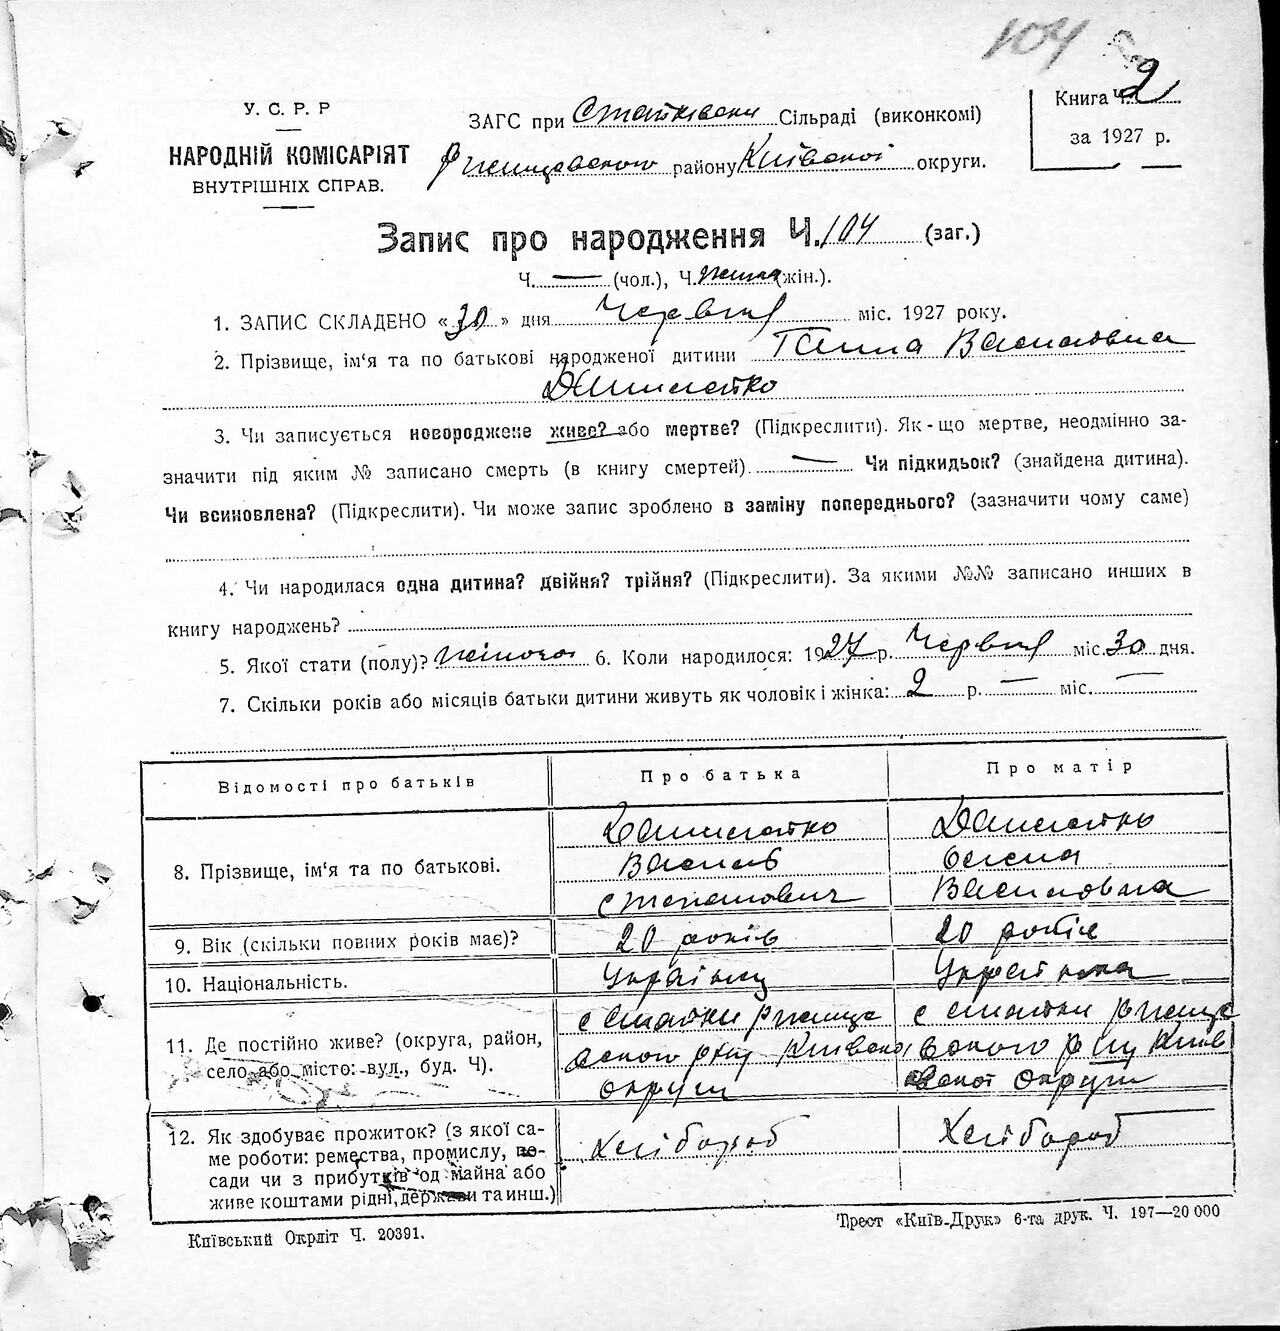 104
У. С. Р. Р
НАРОДНІЙ КОМІСАРІЯТ
ВНУТРІШНІХ СПРАВ.
ЗАГС при Стайківській Сільраді (виконкомі)
Ржищевского району Київської округи.
Книга Ч. 2
за 1927 р.
Запис про народження Ч. 104 (заг.)
Ч. — (чол.), Ч. (жін.).
1. ЗАПИС СКЛАДЕНО «30» дня Червня міс. 1927 року.
2. Прізвище, ім'я та по батькові народженої дитини Ганна Василовна
3. Чи записується новороджене живе? або мертве? (Підкреслити). Як-що мертве, неодмінно за-
значити під яким № записано смерть (в книгу смертей). — Чи підкидьок? (знайдена дитина).
Чи всиновлена? (Підкреслити). Чи може запис зроблено в заміну попереднього? (зазначити чому саме)
4. Чи народилася одна дитина? двійня? трійня? (Підкреслити). За якими №№ записано инших в
книгу народжень?
5. Якої стати (полу)? жіноча 6. Коли народилося: 1927 р. Червня міс. 30 дня.
7. Скільки років або місяців батьки дитини живуть як чоловік і жінка: 2 р. — міс. —
Відомості про батьків
Про батька
Про матір
8. Прізвище, ім'я та по батькові.
Василь
Степанович
Олена
Василовна
9. Вік (скільки повних років має)?
20 років
20 років
10. Національність.
Українец
Українка
11. Де постійно живе? (округа, район,
село або місто: вул., буд. Ч).
с Стайки Ржище
вского рну Київској
округи
с Стайки Ржище
вского рну Київ
ської округи
12. Як здобуває прожиток? (з якої са-
ме роботи: ремества, промислу, по-
сади чи з прибутків од майна або
живе коштами рідні, держави та инш.)
Хлібороб
Хлібороб
Київський Окрліт Ч. 20391.
Трест «Київ-Друк» 6-та друк. Ч. 197—20 000